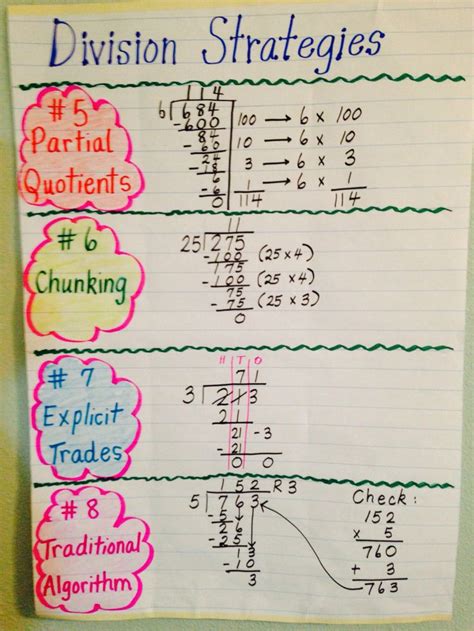 Division Strategies
# 5
Partial
Quotients
114
6 684
-600 100 → 6 x 100
84
-60 10 → 6 x 10
24
-18 3 → 6 x 3
6
-6 1 → 6 x 1
0 114 114
# 6
Chunking
11
25 275
-100 (25 x 4)
175
-100 (25 x 4)
75
-75 (25 x 3)
0
# 7
Explicit
Trades
H T O
71
3 213
21
21 -3
-21
0 0
# 8
Traditional
Algorithm
152 R 3
5 763
-5
26
-25
13
-10
3
Check:
152
x 5
760
+ 3
763